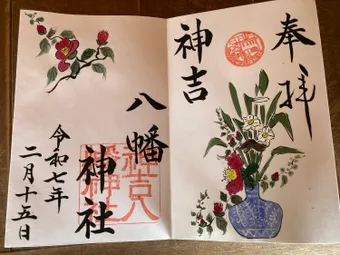 奉拝
神吉
八幡
神社
神吉八
幡神社
令和七年
二月十五日